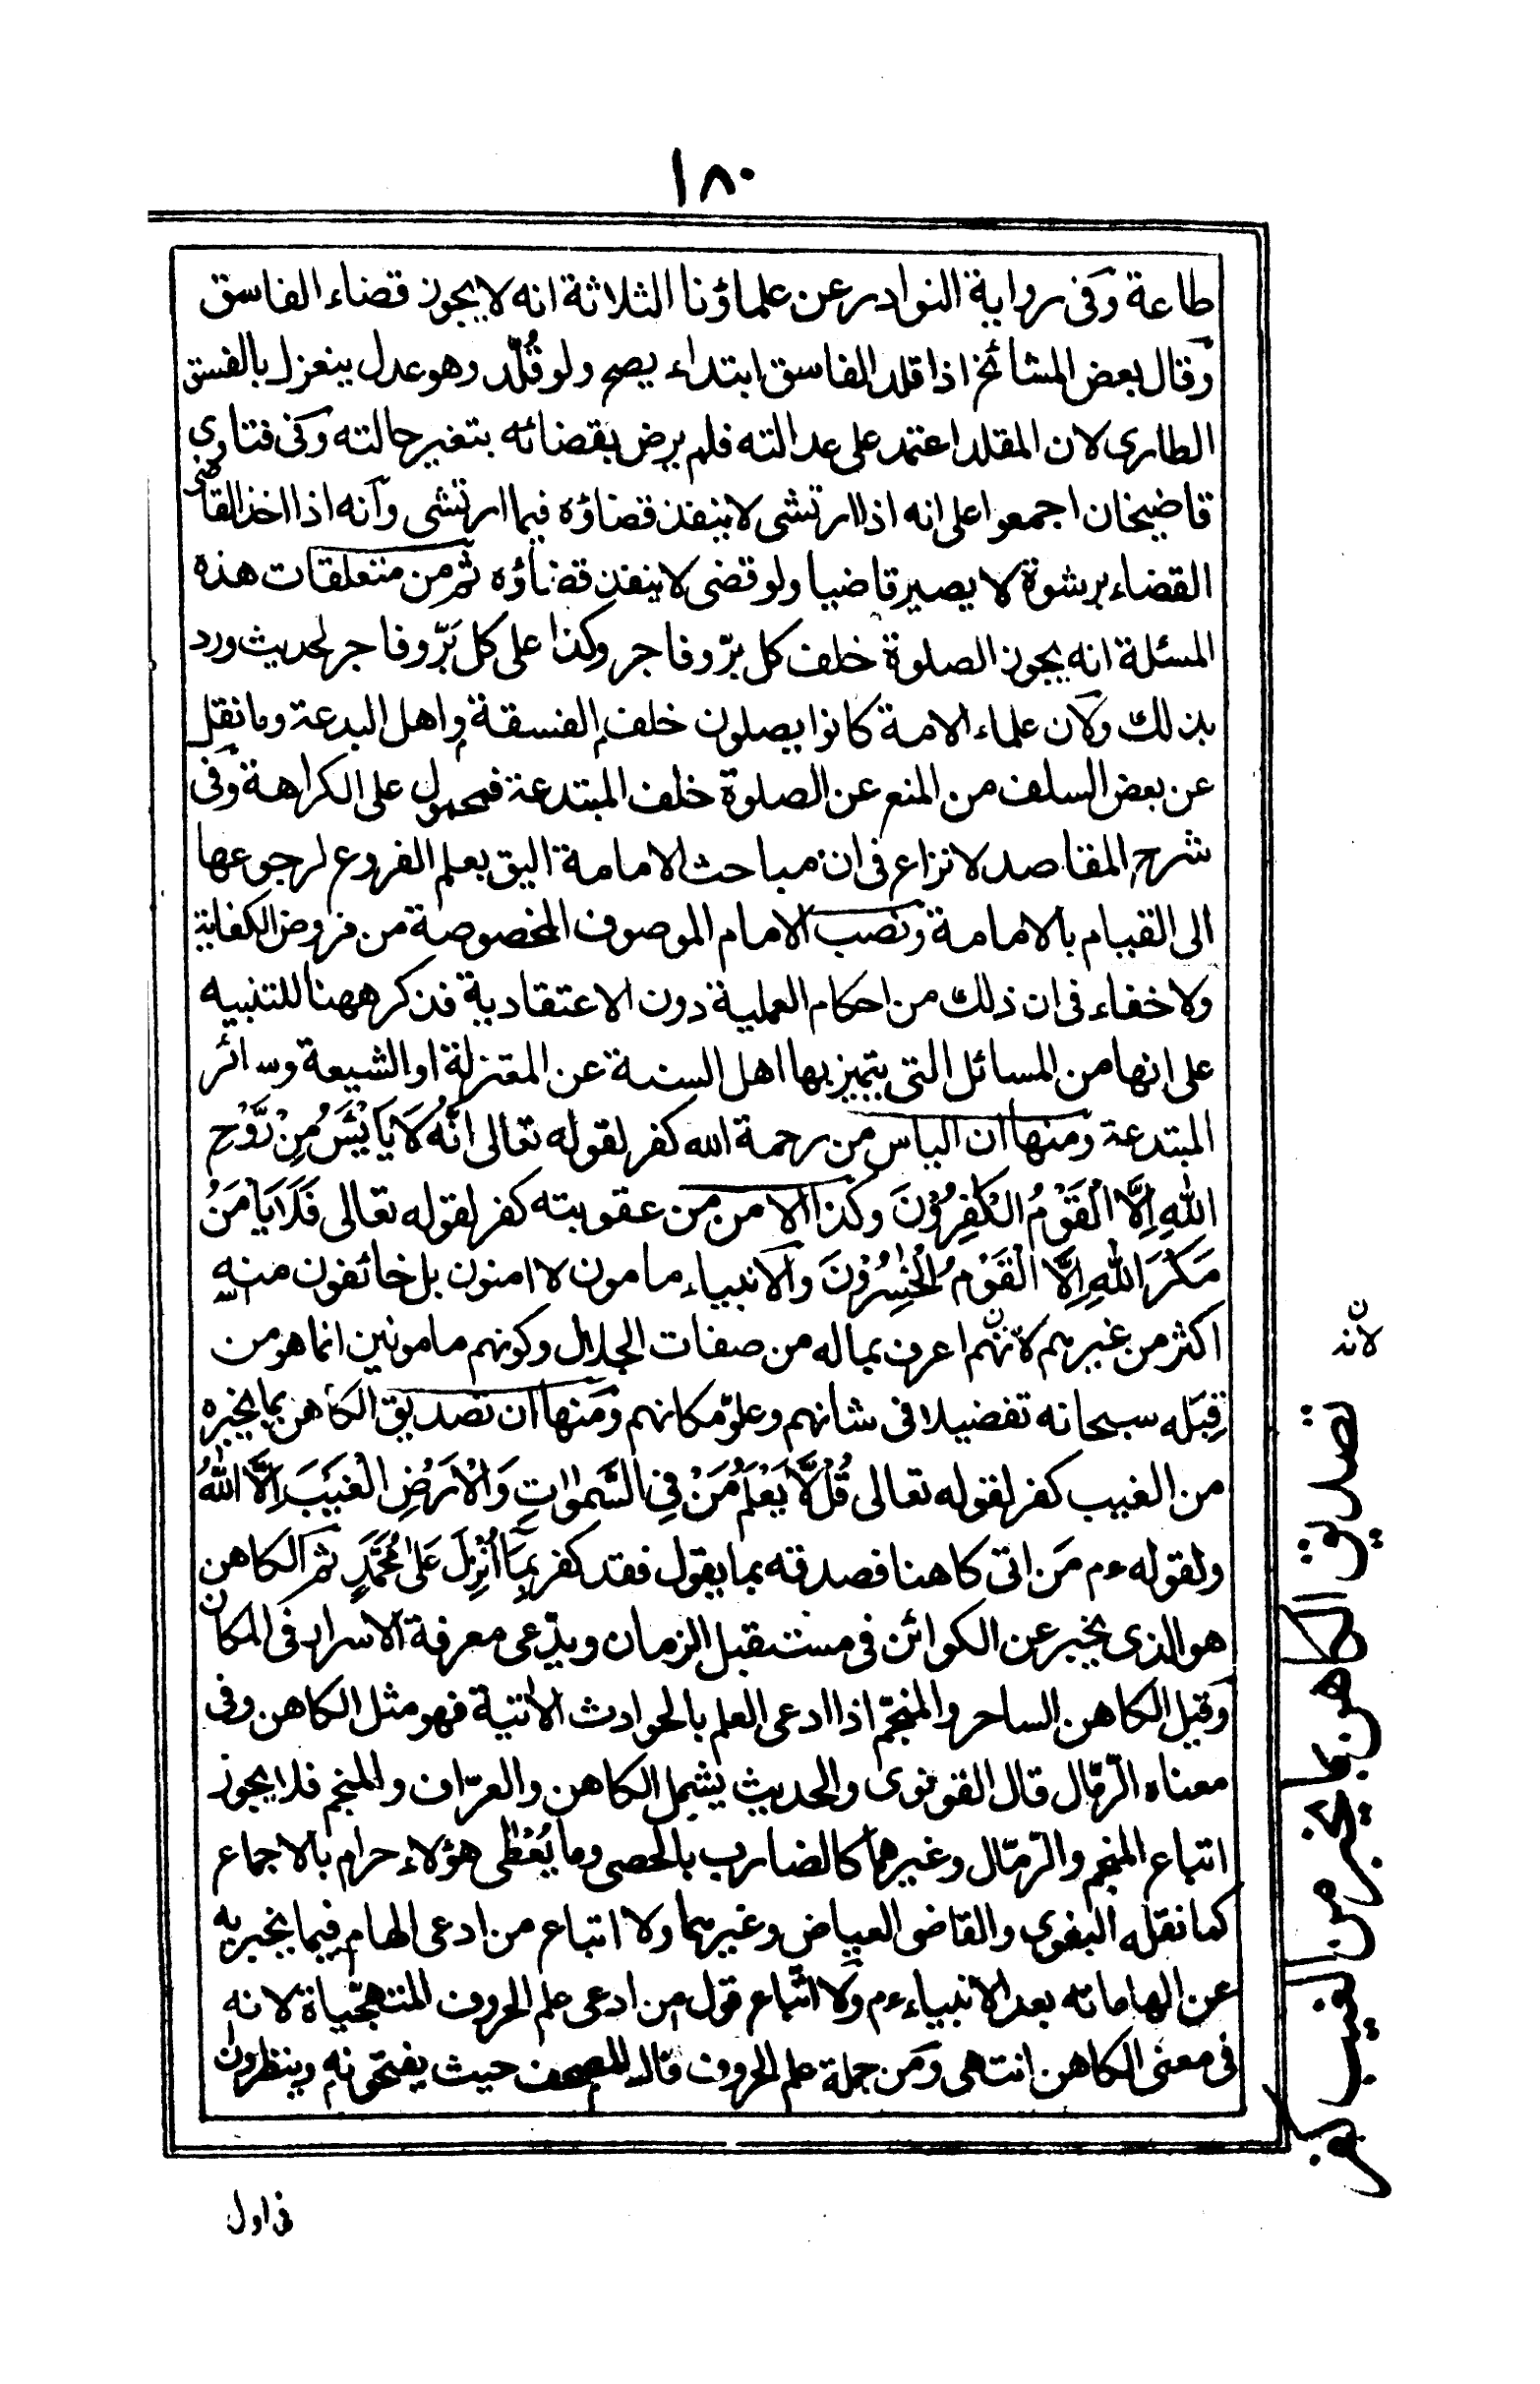 ١٨٠
طاعة وفى رواية النوادر عن علماؤنا الثلاثة انه لا يجوز قضاء الفاسق
وقال بعض المشائخ اذا قلد الفاسق ابتداء يصح ولو قُلّد وهو عدل ينعزل بالفسق
الطارى لان المقلد اعتمد على عدالته فلم يرض بقضائه بتغير حالته وفى فتاوى
قاضيخان اجمعوا على انه اذا ارتشى لا ينفذ قضاؤه فيما ارتشى وانه اذا اخذ القاضى
القضاء برشوة لا يصير قاضيا ولو قضى لا ينفذ قضاؤه ثم من متعلقات هذه
المسئلة انه يجوز الصلوة خلف كل برّ وفاجر وكذا على كل بَرّ وفاجر لحديث ورد
بذلك ولان علماء الامة كانوا يصلون خلف الفسقة واهل البدعة وما نقل
عن بعض السلف من المنع عن الصلوة خلف المبتدعة فمحمول على الكراهة وفى
شرح المقاصد لا نزاع فى ان مباحث الامامة اليق بعلم الفروع لرجوعها
الى القيام بالامامة ونصب الامام الموصوف المخصوصة من فروض الكفاية
ولا خفاء فى ان ذلك من احكام العملية دون الاعتقادية فذكر ههنا للتنبيه
على انها من المسائل التى يتميز بها اهل السنة عن المعتزلة او الشيعة وسائر
المبتدعة ومنها ان الياس من رحمة الله كفر لقوله تعالى انَّهُ لَا يَايْئَسُ مِنْ رَّوْحِ
اللهِ اِلَّا الْقَوْمُ الْكٰفِرُوْنَ وكذا الامن من عقوبته كفر لقوله تعالى فَلَا يَاْمَنُ
مَكْرَ اللهِ اِلَّا الْقَوْمُ الْخٰسِرُوْنَ والانبياء مامون لا امنون بل خائفون منه
اكثر من غيرهم لانهم اعرف بماله من صفات الجلال وكونهم مامونين انما هو من
قِبَله سبحانه تفضيلا فى شانهم وعلوّ مكانهم ومنها ان تصديق الكاهن بما يخبره
من الغيب كفر لقوله تعالى قُلْ لَّا يَعْلَمُ مَنْ فِى السَّمٰوٰتِ وَالْاَرْضِ الْغَيْبَ اِلَّا اللهُ
ولقوله ءم مَن اتى كاهنا فصدقه بما يقول فقد كفر بِمَا اُنْزِلَ عَلٰى مُحَمَّدٍ ثم الكاهن
هو الذى يخبر عن الكوائن فى مستقبل الزمان ويدّعى معرفة الاسرار فى المكان
وقيل الكاهن الساحر والمنجّم اذا ادعى العلم بالحوادث الاتية فهو مثل الكاهن وفى
معناه الرّمّال قال القونوى والحديث يشمل الكاهن والعرّاف والمنجم فلا يجوز
اتباع المنجم والرّمّال وغيرهما كالضارب بالحصى وما يُعْطٰى هؤلاء حرام بالاجماع
كما نقله البغوى والقاضى العياض وغيرهما ولا اتباع من ادعى الهام فيما يخبر به
عن الهاماته بعد الانبياء ءم ولا اتّباع قول من ادعى علم الحروف المتهجّياة لانه
فى معنى الكاهن انتهى ومن جملة علم الحروف فال المصحف حيث يفتحونه وينظرون
لانه
تصديق الكاهن بما يخبر من الغيب كفر
فى اول